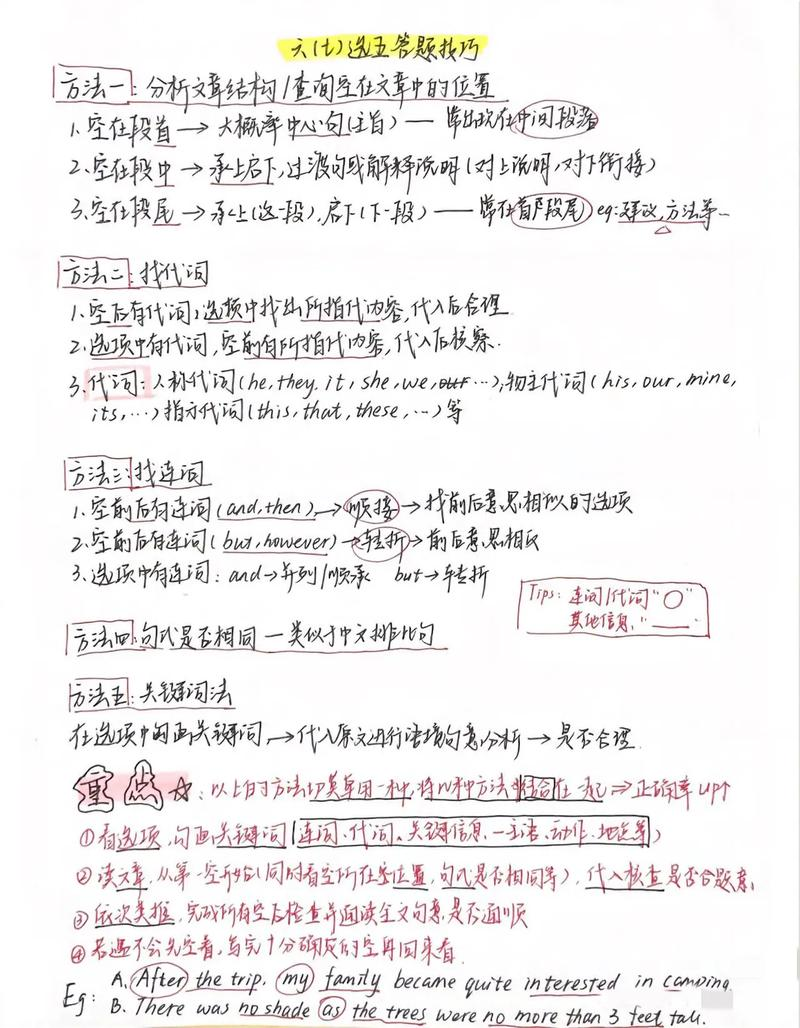 六(七)选五答题技巧
方法一:分析文章结构/查询空在文章中的位置
1.空在段首→大概率中心句(主旨)——常出现在中间段落
2.空在段中→承上启下,过渡句或解释说明(对上说明,对下衔接)
3.空在段尾→承上(这一段),启下(下一段)——常在首段段尾 eg:建议,方法等…
方法二:找代词
1.空后有代词,选项中找出所指代内容,代入后合理.
2.选项中有代词,空前有所指代内容,代入后核察.
3.代词:人称代词(he,they,it,she,we,our…);物主代词(his,our,mine,
its,…)指示代词(this,that,these,…)等
方法三:找连词
1.空前后有连词(and,then)→顺接→找前后意思相似的选项
2.空前后有连词(but,however)→转折→前后意思相反
3.选项中有连词:and→并列/顺承 but→转折
Tips: 连词/代词"○"
其他信息,"——"
方法四:句式是否相同—类似于中文排比句
方法五:关键词法
在选项中勾画关键词,→代入原文进行语境句意分析→是否合理.
重点☆:以上的方法切莫单用一种,将几种方法结合在一起⇒正确率up↑
①看选项,勾画关键词(连词、代词、关键信息—主语、动作、地点等)
②读文章,从第一空开始(同时看空所在空位置,句式是否相同等),代入核查是否合题意.
③依次类推,完成所有空后检查并通读全文句意是否通顺
④若遇不会先空着,写完十分确定的空再回来看.
Eg: A. After the trip, my family became quite interested in camping.
B. There was no shade as the trees were no more than 3 feet tall.